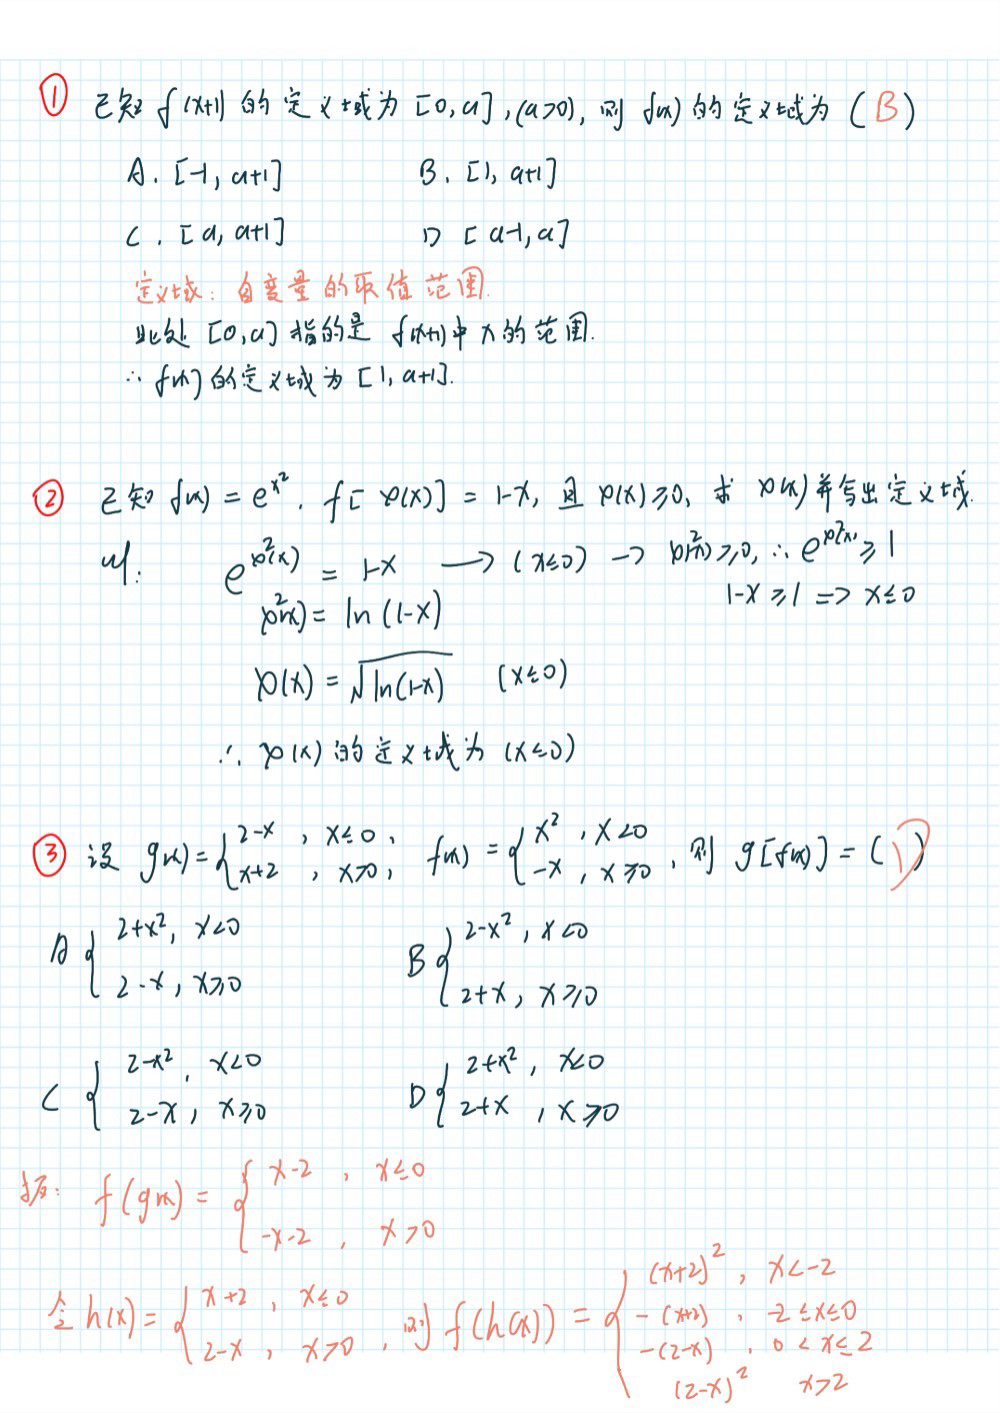 ① 已知 f(x+1) 的定义域为 [0, a], (a>0), 则 f(x) 的定义域为 ( B )
A. [-1, a+1] B. [1, a+1]
C. [a, a+1] D [a-1, a]
定义域: 自变量的取值范围.
此处 [0, a] 指的是 f(x+1) 中 x 的范围.
∴ f(x) 的定义域为 [1, a+1].
② 已知 f(x) = e^{x²}, f[φ(x)] = 1-x, 且 φ(x) ≥0, 求 φ(x) 并写出定义域.
e^{φ²(x)} = 1-x → (x≤0) → φ²(x) ≥0, ∴ e^{φ²(x)} ≥ 1
φ²(x) = ln (1-x) 1-x ≥1 => x≤0
φ(x) = √ln(1-x) (x≤0)
∴ φ(x) 的定义域为 (x≤0)
③ 设 g(x) = { 2-x , x≤0 ; x+2 , x>0 , f(x) = { x² , x<0 ; -x , x≥0 , 则 g[f(x)] = ( D )
A { 2+x², x<0 ; 2-x, x≥0 B { 2-x², x<0 ; 2+x, x≥0
C { 2-x², x<0 ; 2-x, x≥0 D { 2+x², x<0 ; 2+x , x≥0
拓: f(g(x)) = { x-2 , x≤0 ; -x-2 , x>0
令 h(x) = { x+2 , x≤0 ; 2-x , x>0 , 则 f(h(x)) = { (x+2)² , x<-2 ; -(x+2) , -2≤x≤0 ; -(2-x) , 0<x≤2 ; (2-x)² x>2